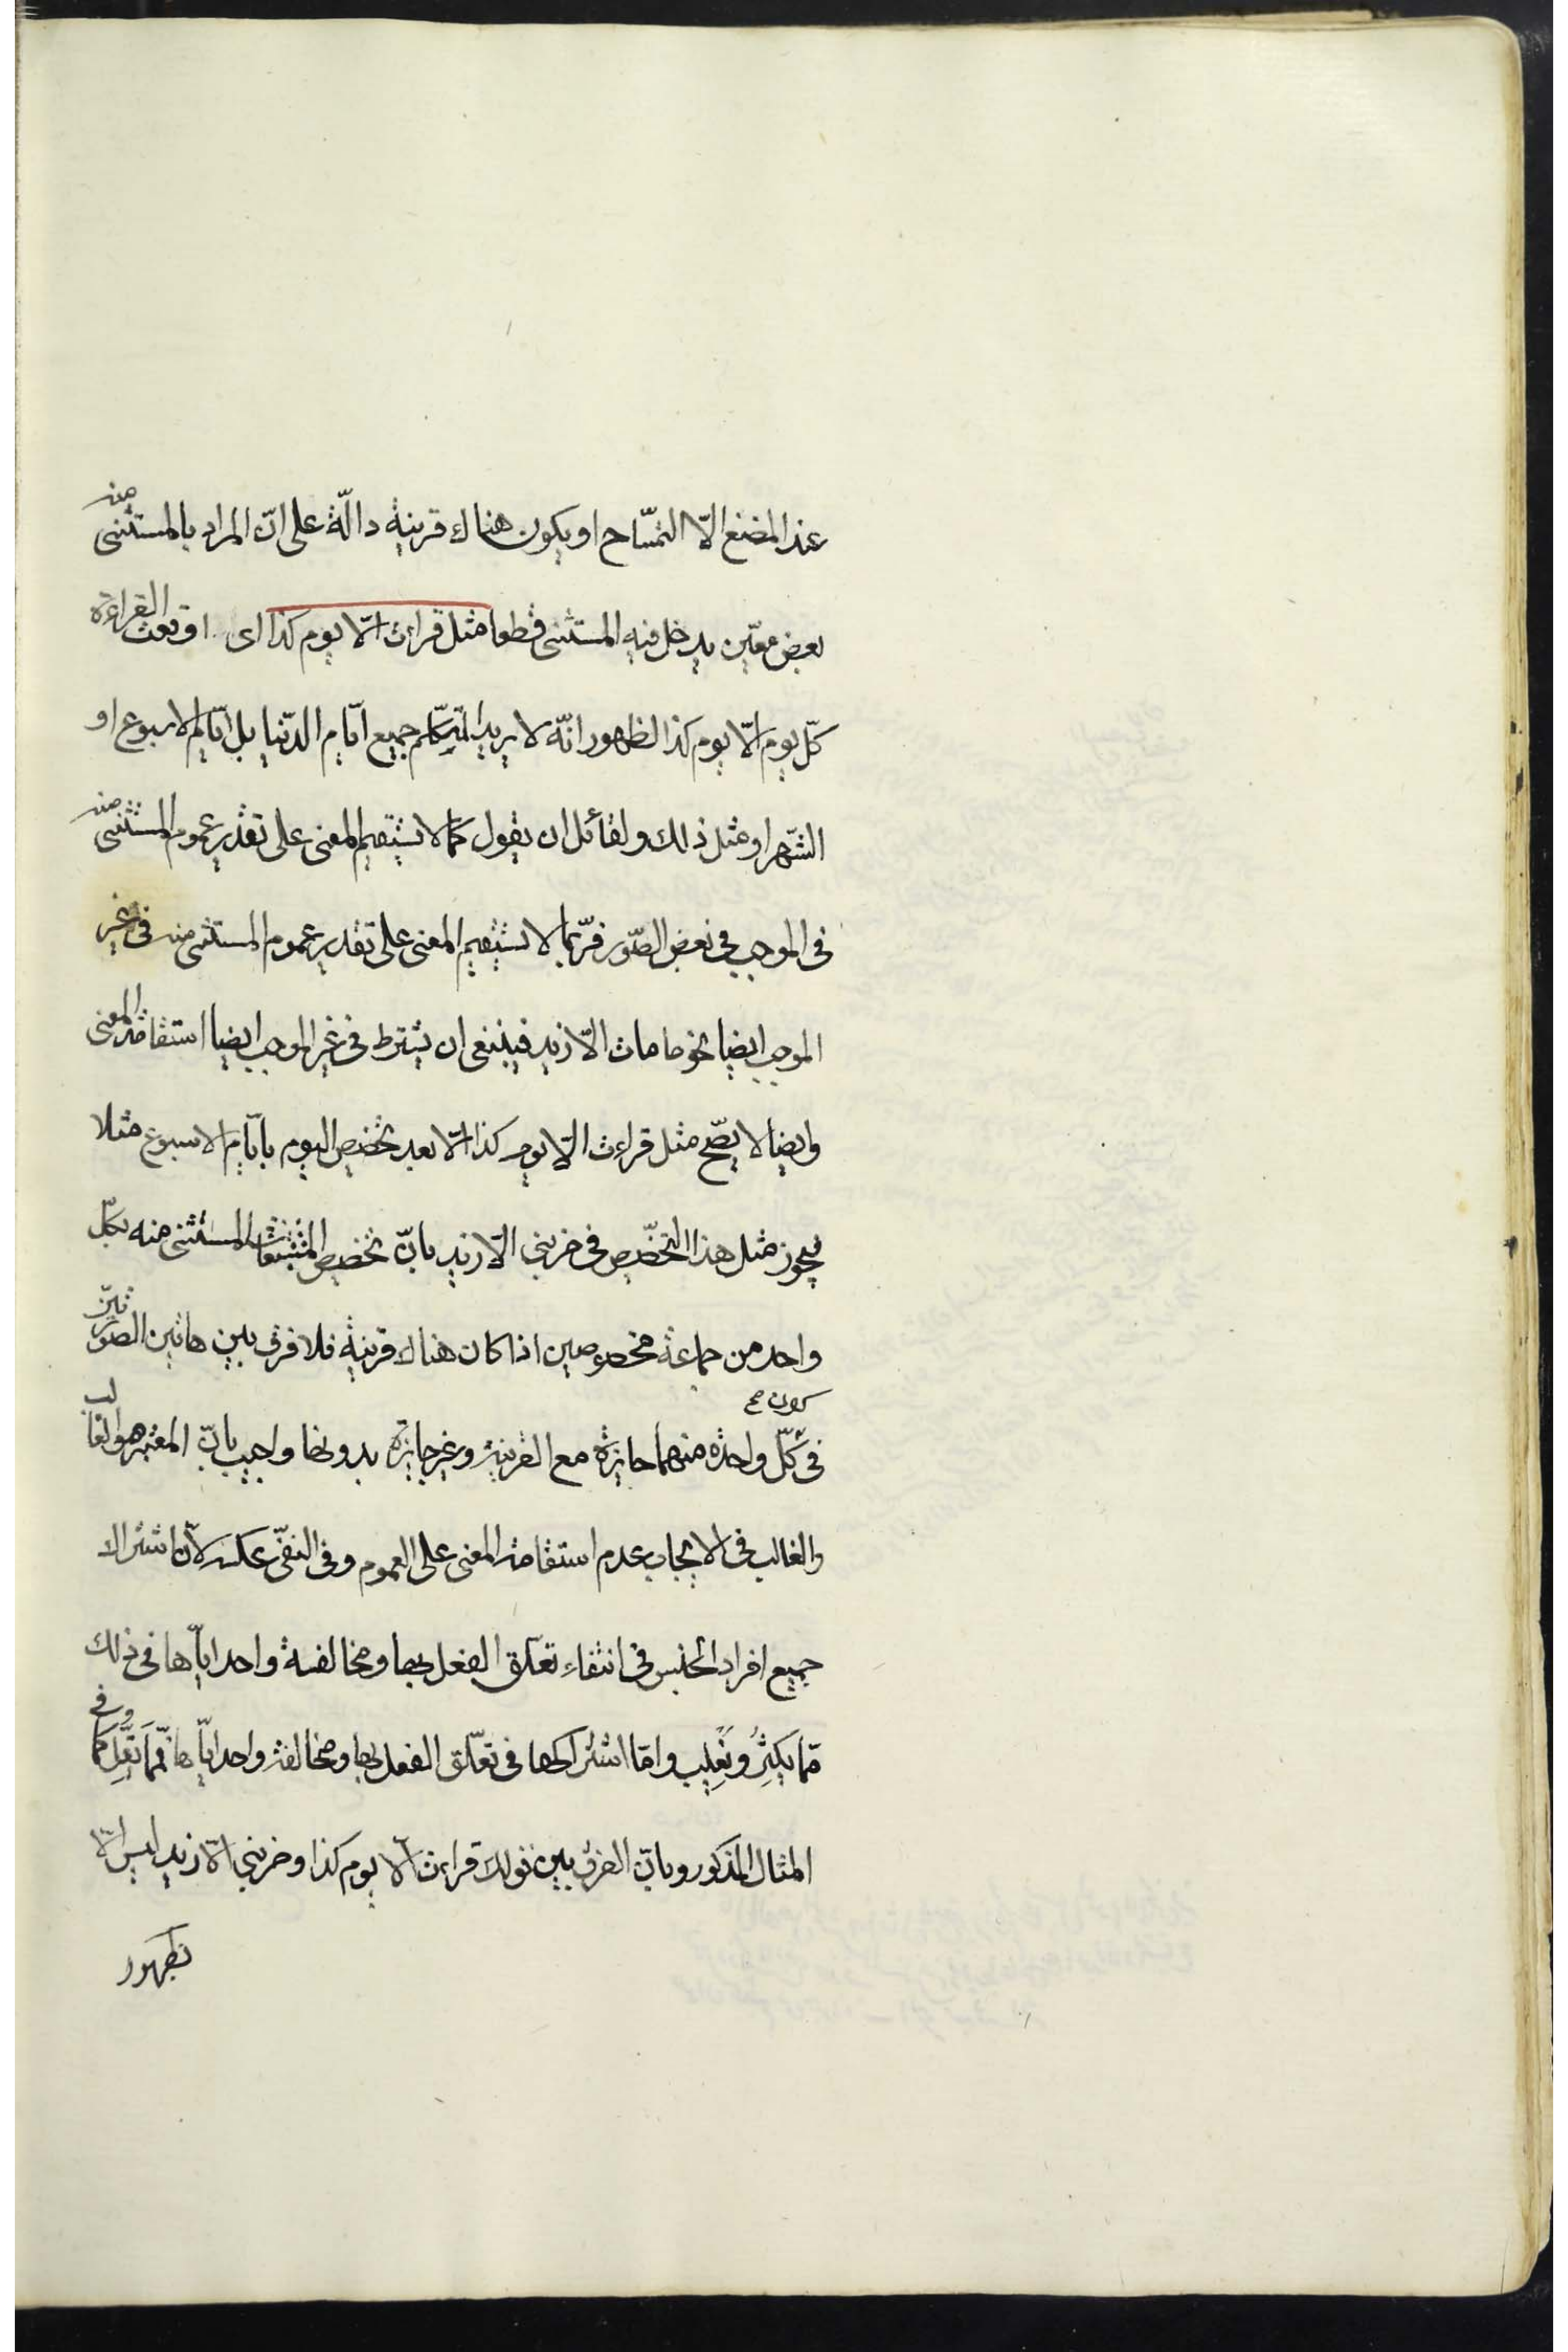 عند المضغ الّا التمّساح او يكون هناك قرينة دالّة على انّ المراد بالمستثنى منه
بعض معيّن يدخل فيه المستثنى قطعا مثل قراءت الّا يوم كذا اى اوقعت القراءة
كلّ يوم الّا يوم كذا لظهور انّه لا يريد المتكلّم جميع ايّام الدّنيا بل ايّام الاسبوع او
الشّهر او مثل ذلك ولقائل ان يقول كما لا يستقيم المعنى على تقدير عموم المستثنى منه
فى الموجب فى بعض الصّور فرّبما لا يستقيم المعنى على تقدير عموم المستثنى منه فى غير
الموجب ايضا نحو ما مات الّا زيد فينبغى ان يشترط فى غير الموجب ايضا استقامة المعنى
وايضا لا يصّح مثل قراءت الّا يوم كذا الّا بعد تخصيص اليوم بايّام الاسبوع مثلا
يجوز مثل هذا التخصّيص فى ضربنى الّا زيد بانّ تخصيص المستثنى منه بكلّ
واحد من جماعة مخصوصين اذا كان هناك قرينة فلا فرق بين هاتين الصّورتين
كون صح
فى كلّ واحدة منهما جايزة مع القرينة وغير جايزة بدونها واجيب بانّ المعتبر هو الغالب
والغالب فى الايجاب عدم استقامة المعنى على العموم وفى النفّى عكسه لانّ اشتراك
جميع افراد الجنس فى انتفاء تعلّق الفعل بها ومخالفة واحد ايّاها فى ذلك
ممّا يكثر ويغلب وامّا اشتراكها فى تعلّق الفعل بها ومخالفة واحد ايّاها فممّا يقلّ كما وفى
المثال المذكور وبانّ الفرق بين قولك قراءت الّا يوم كذا وضربنى الّا زيد ليس الّا
بظهور